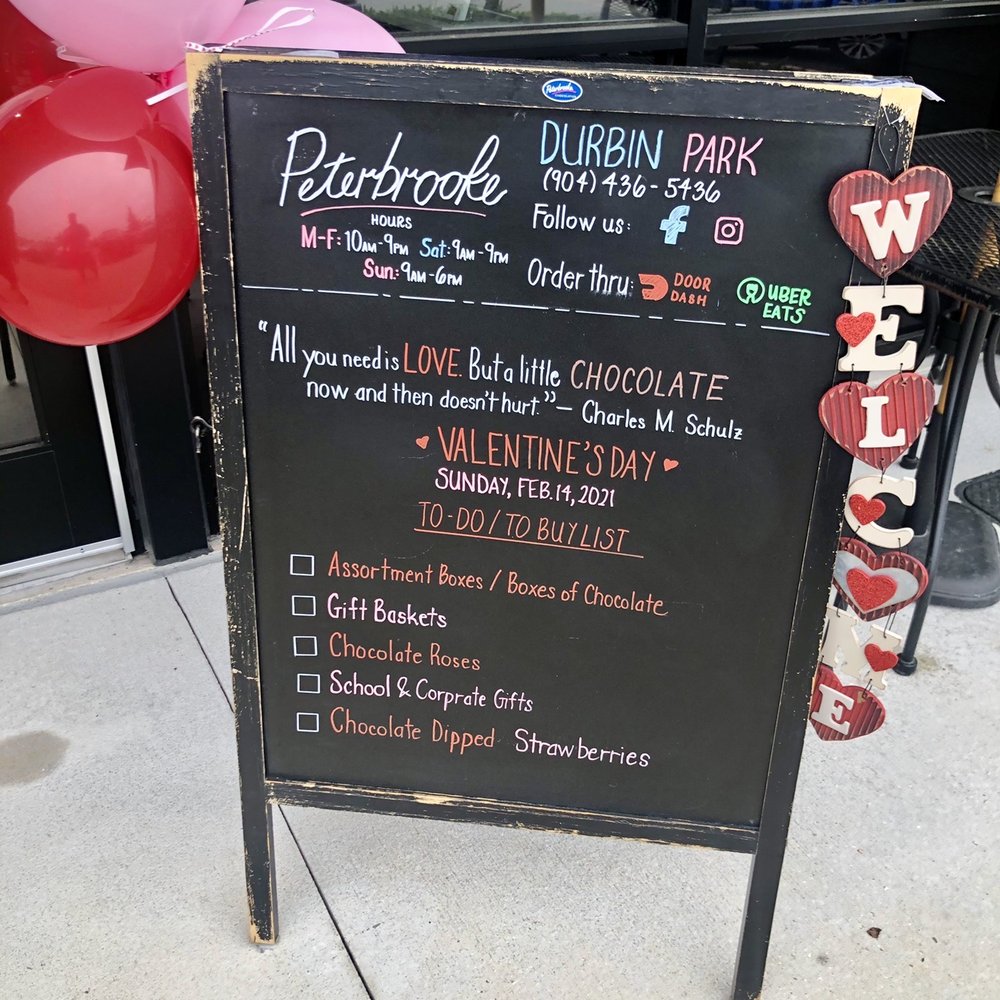 Peterbrooke
Peterbrooke
HOURS
M-F: 10AM-9PM Sat: 9AM-9PM
Sun: 9AM-6PM
DURBIN PARK
(904) 436-5436
Follow us:
Order thru: DOOR DASH UBER EATS
"All you need is LOVE. But a little CHOCOLATE
now and then doesn't hurt." - Charles M. Schulz
VALENTINE'S DAY
SUNDAY, FEB. 14, 2021
TO-DO / TO BUY LIST
Assortment Boxes / Boxes of Chocolate
Gift Baskets
Chocolate Roses
School & Corprate Gifts
Chocolate Dipped Strawberries
W
E
L
C
M
E